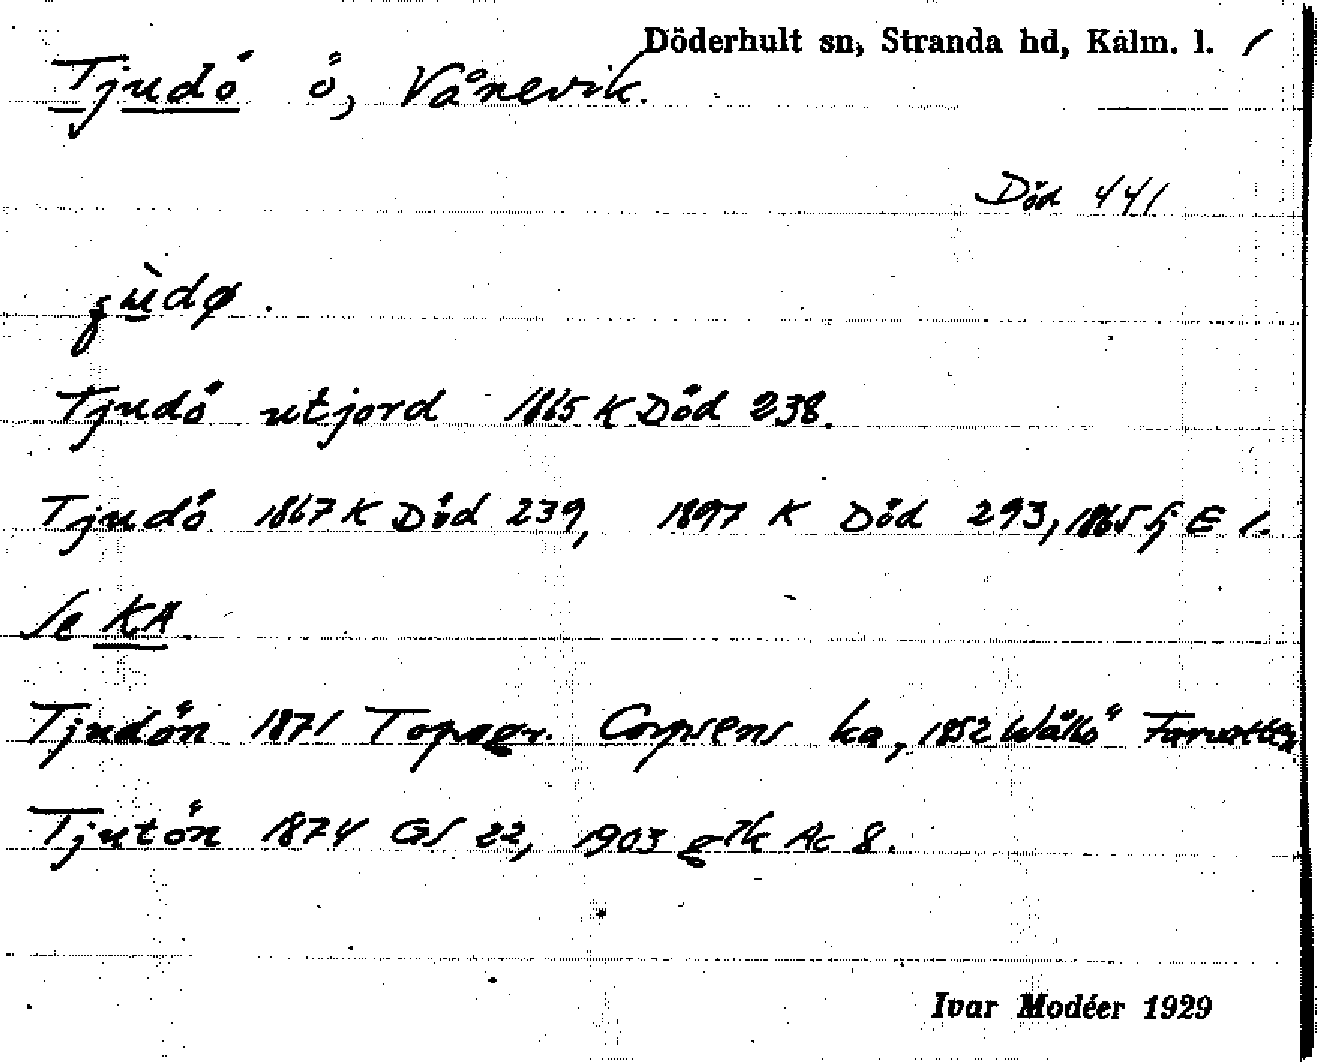 Döderhult sn, Stranda hd, Kalm. l. /
Tjudö ö, Vånevik.
Död 441
Tjudö utjord 1865 K Död 238.
Tjudö 1867 K Död 239, 1897 K Död 293, 1865 E 1.
Se KA.
Tjudön 1871 Topogr. Corpsens ka, 1852
Tjutön 1874 GS 22, 1903 Ac 8.
Ivar Modéer 1929